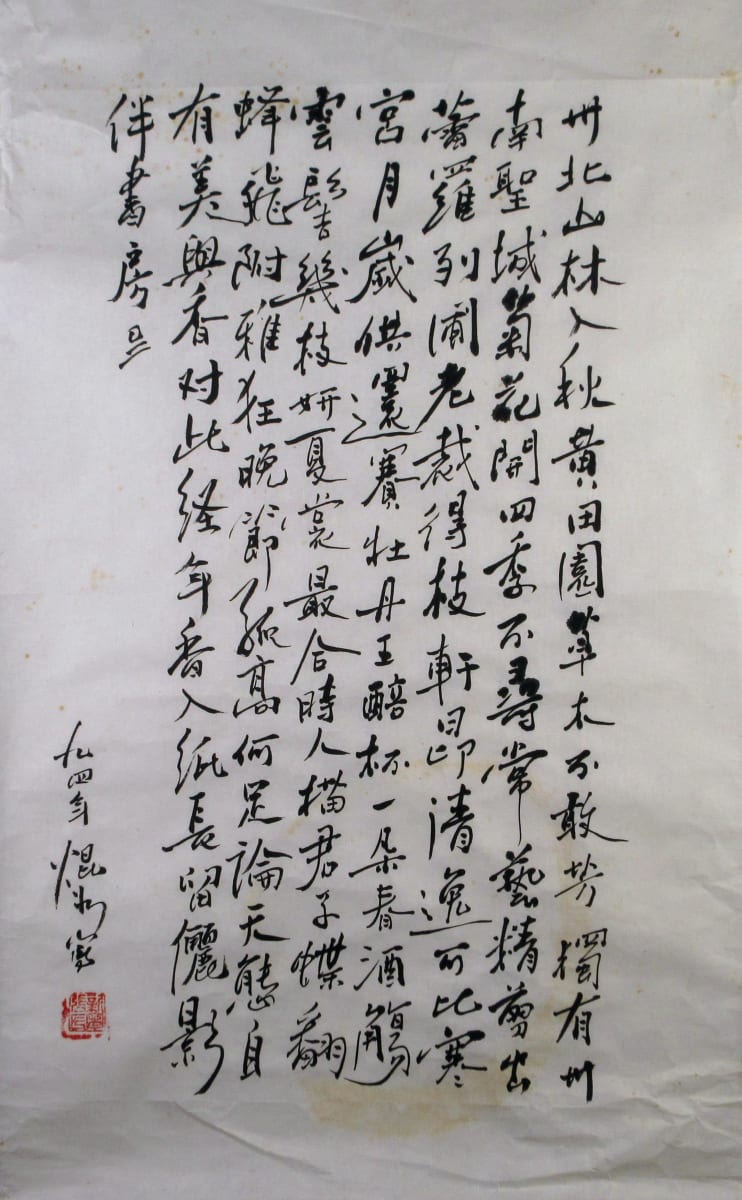 州北山林入秋黄田園草木不敢芳獨有州
南聖城菊花開四季不尋常藝精剪出
羅列圃老裁得枝軒昂清逸可比寒
宮月歲供還賽牡丹王醅杯一朵春酒觴
雲髻幾枝妍夏裳最合時人描君子蝶翻
蜂附雅狂晚節孤高何足論天態自
有美與香对此经年香入紙長留儷影
伴書房
九四年焜寫